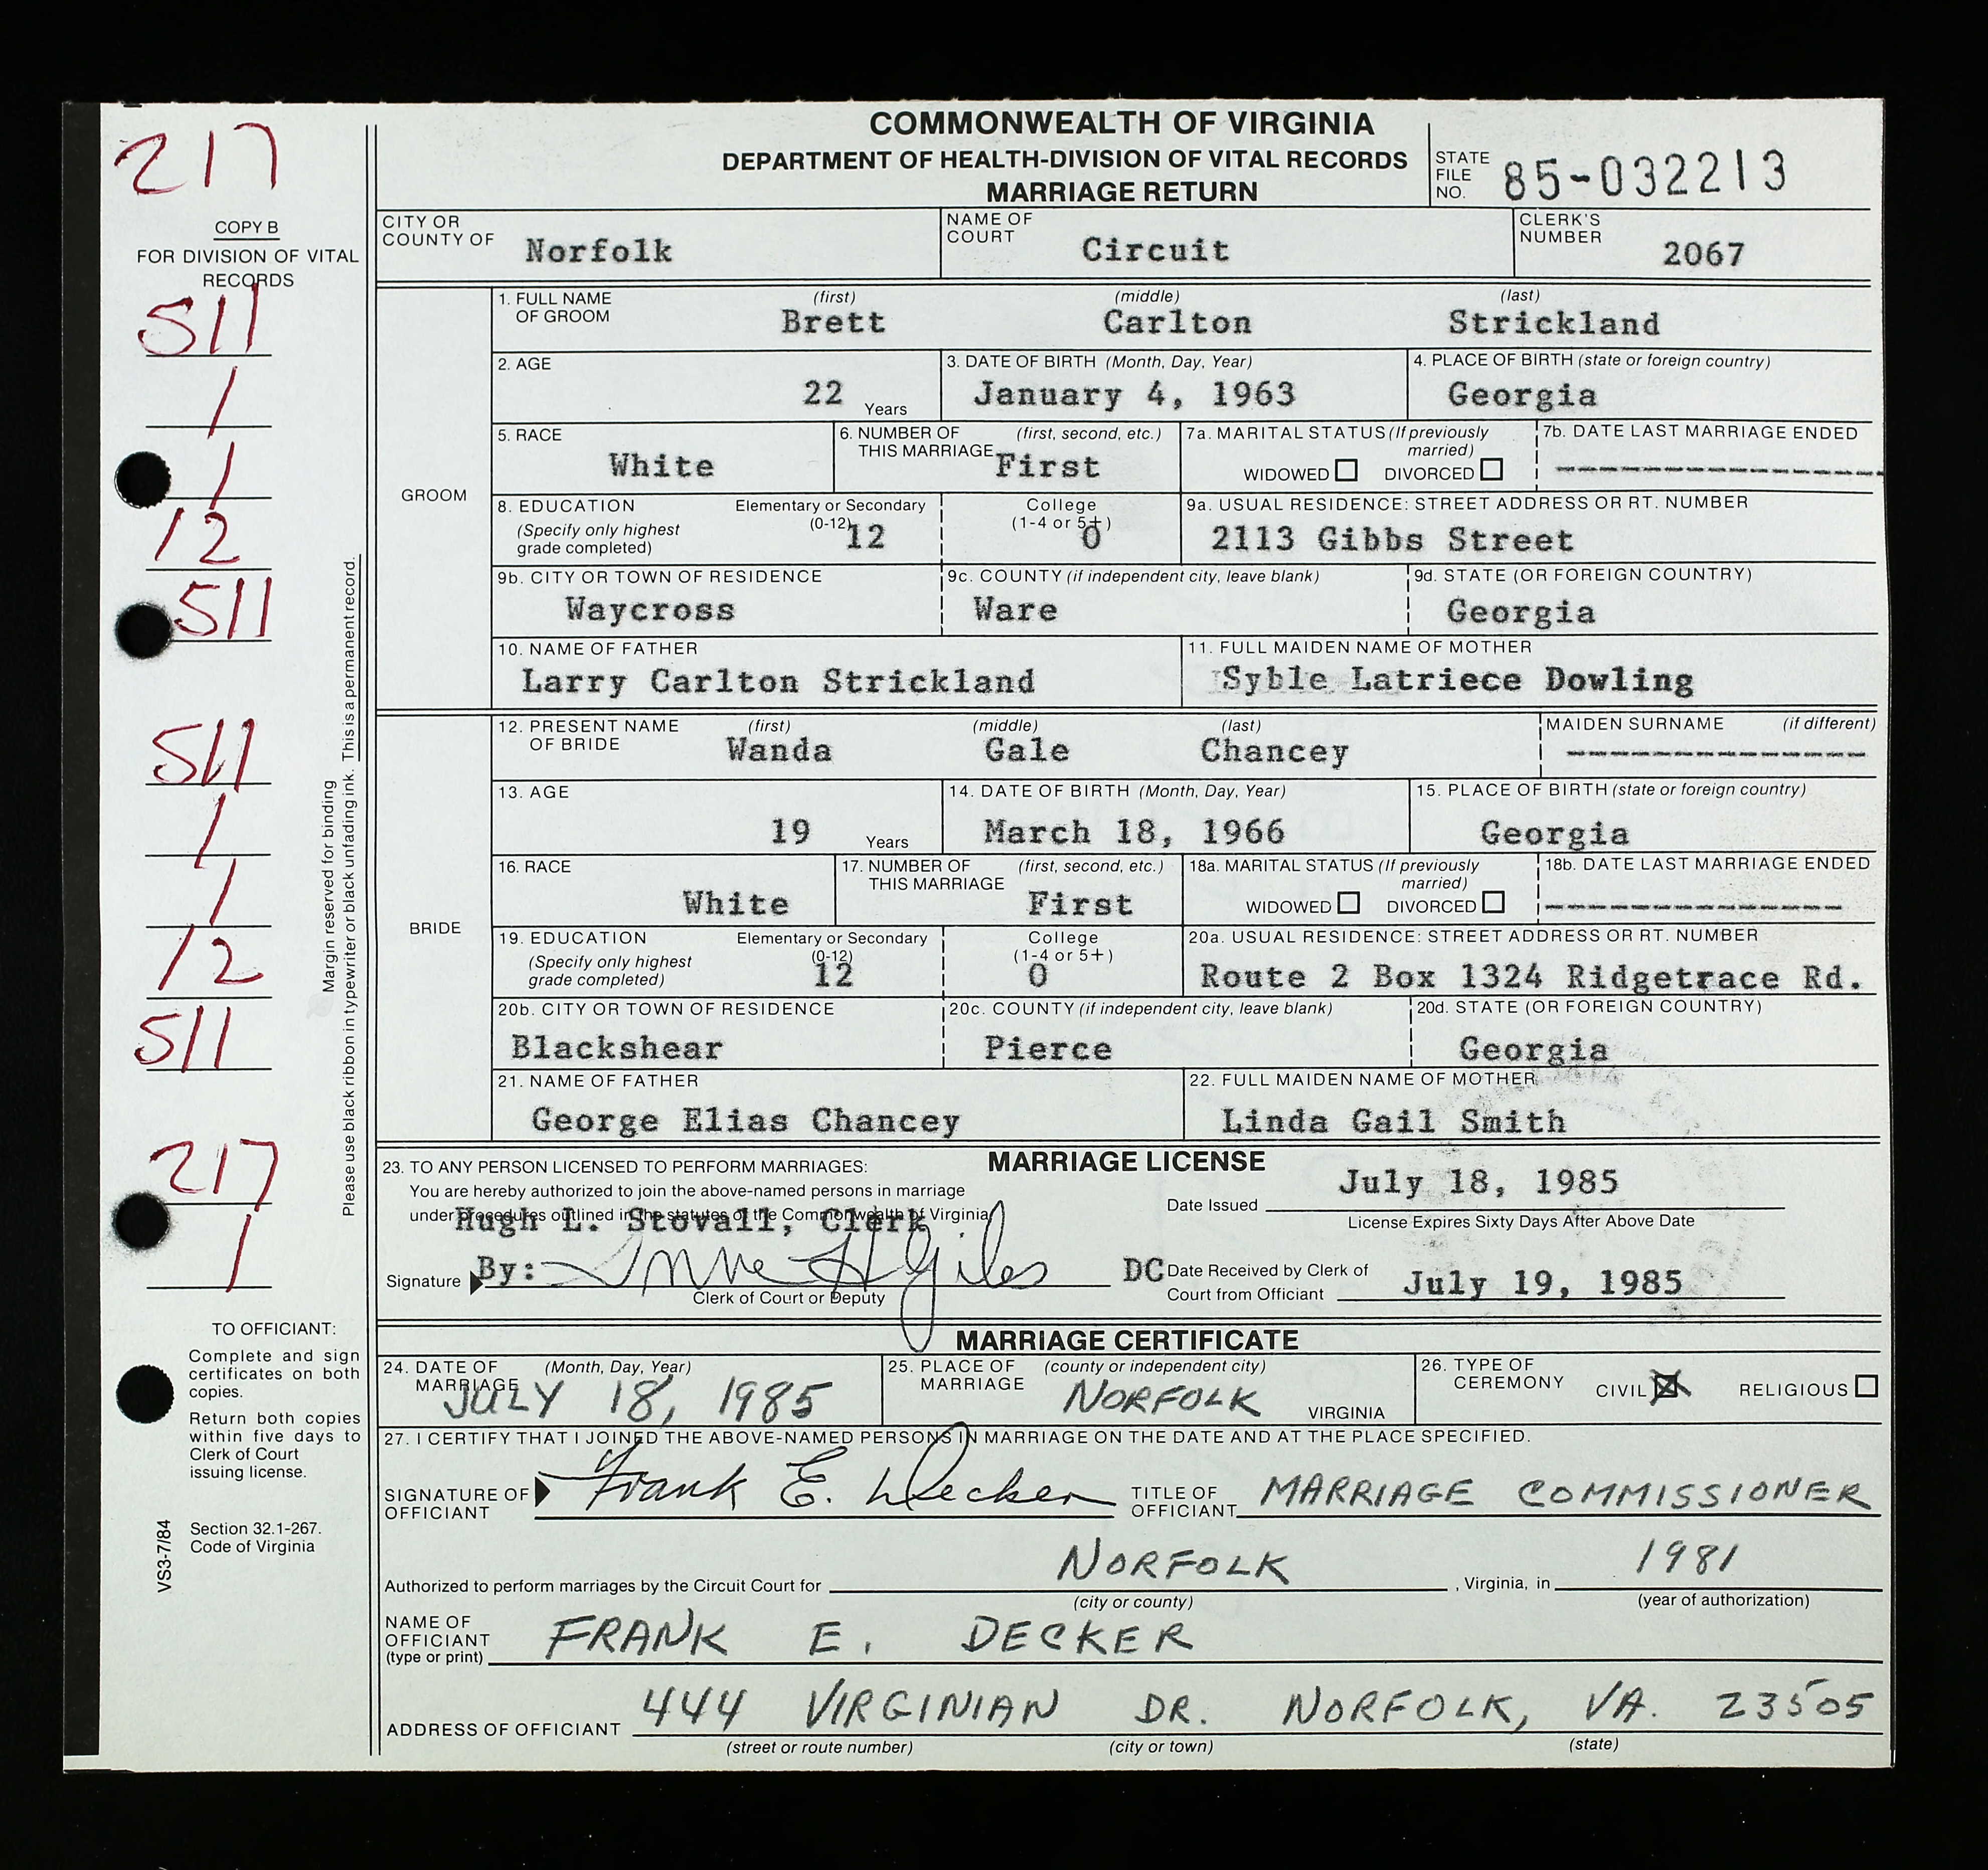 COMMONWEALTH OF VIRGINIA
DEPARTMENT OF HEALTH-DIVISION OF VITAL RECORDS
MARRIAGE RETURN
STATE FILE NO. 85-032213
217
COPY B
FOR DIVISION OF VITAL RECORDS
511
1
1
12
511
511
1
1
12
511
217
1
Margin reserved for binding
Please use black ribbon in typewriter or black unfading ink. This is a permanent record.
TO OFFICIANT:
Complete and sign
certificates on both
copies.
Return both copies
within five days to
Clerk of Court
issuing license.
Section 32.1-267.
Code of Virginia
VS3-7/84
CITY OR COUNTY OF Norfolk
NAME OF COURT Circuit
CLERK'S NUMBER 2067
GROOM
1. FULL NAME OF GROOM (first) Brett (middle) Carlton (last) Strickland
2. AGE 22 Years
3. DATE OF BIRTH (Month, Day, Year) January 4, 1963
4. PLACE OF BIRTH (state or foreign country) Georgia
5. RACE White
6. NUMBER OF THIS MARRIAGE (first, second, etc.) First
7a. MARITAL STATUS (If previously married) WIDOWED DIVORCED
7b. DATE LAST MARRIAGE ENDED
8. EDUCATION (Specify only highest grade completed) Elementary or Secondary (0-12) 12 College (1-4 or 5+) 0
9a. USUAL RESIDENCE: STREET ADDRESS OR RT. NUMBER 2113 Gibbs Street
9b. CITY OR TOWN OF RESIDENCE Waycross
9c. COUNTY (if independent city, leave blank) Ware
9d. STATE (OR FOREIGN COUNTRY) Georgia
10. NAME OF FATHER Larry Carlton Strickland
11. FULL MAIDEN NAME OF MOTHER Syble Latriece Dowling
BRIDE
12. PRESENT NAME OF BRIDE (first) Wanda (middle) Gale (last) Chancey
MAIDEN SURNAME (if different)
13. AGE 19 Years
14. DATE OF BIRTH (Month, Day, Year) March 18, 1966
15. PLACE OF BIRTH (state or foreign country) Georgia
16. RACE White
17. NUMBER OF THIS MARRIAGE (first, second, etc.) First
18a. MARITAL STATUS (If previously married) WIDOWED DIVORCED
18b. DATE LAST MARRIAGE ENDED
19. EDUCATION (Specify only highest grade completed) Elementary or Secondary (0-12) 12 College (1-4 or 5+) 0
20a. USUAL RESIDENCE: STREET ADDRESS OR RT. NUMBER Route 2 Box 1324 Ridgetrace Rd.
20b. CITY OR TOWN OF RESIDENCE Blackshear
20c. COUNTY (if independent city, leave blank) Pierce
20d. STATE (OR FOREIGN COUNTRY) Georgia
21. NAME OF FATHER George Elias Chancey
22. FULL MAIDEN NAME OF MOTHER Linda Gail Smith
MARRIAGE LICENSE
23. TO ANY PERSON LICENSED TO PERFORM MARRIAGES:
You are hereby authorized to join the above-named persons in marriage
under procedures outlined in the statutes of the Commonwealth of Virginia
Hugh L. Stovall, Clerk
Date Issued July 18, 1985
License Expires Sixty Days After Above Date
Signature By: Anne H Giles DC
Clerk of Court or Deputy
Date Received by Clerk of Court from Officiant July 19, 1985
MARRIAGE CERTIFICATE
24. DATE OF MARRIAGE (Month, Day, Year) JULY 18, 1985
25. PLACE OF MARRIAGE (county or independent city) NORFOLK VIRGINIA
26. TYPE OF CEREMONY CIVIL RELIGIOUS
27. I CERTIFY THAT I JOINED THE ABOVE-NAMED PERSONS IN MARRIAGE ON THE DATE AND AT THE PLACE SPECIFIED.
SIGNATURE OF OFFICIANT Frank E. Decker
TITLE OF OFFICIANT MARRIAGE COMMISSIONER
Authorized to perform marriages by the Circuit Court for NORFOLK, Virginia, in 1981
(city or county) (year of authorization)
NAME OF OFFICIANT (type or print) FRANK E. DECKER
ADDRESS OF OFFICIANT 444 VIRGINIAN DR. NORFOLK, VA. 23505
(street or route number) (city or town) (state)